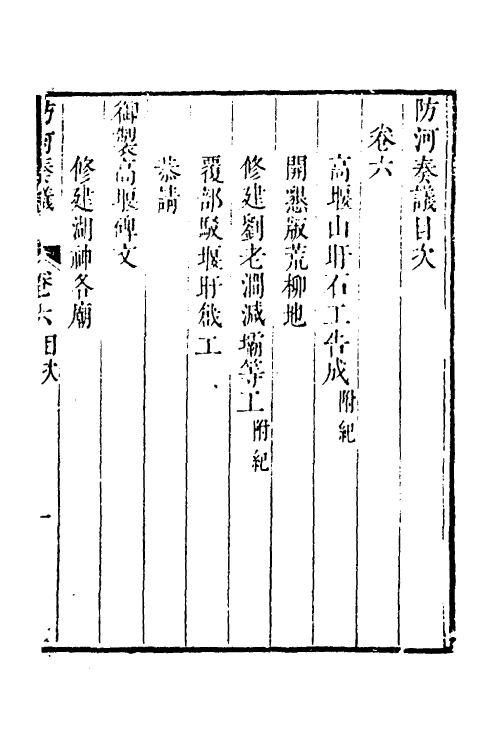 防河奏議目次
卷六
高堰山盱石工告成附紀
開懇版荒柳地
修建劉老澗減壩等工附紀
覆部駁堰盱戧工
恭請
御製高堰碑文
修建湖神各廟
防河奏議 卷六目次 一